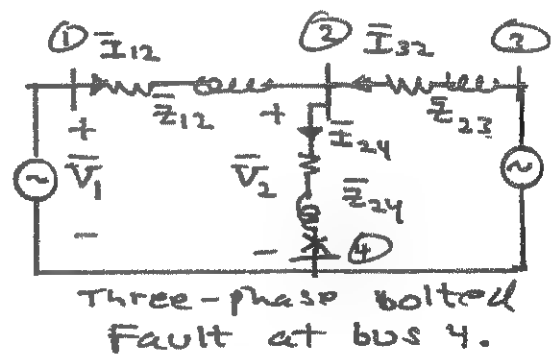 ① I̅12 ② I̅32 ③
Z̅12 Z̅23
+ + I̅24
V̅1 V̅2 Z̅24
~ ~
- - ④
Three-phase bolted
Fault at bus 4.